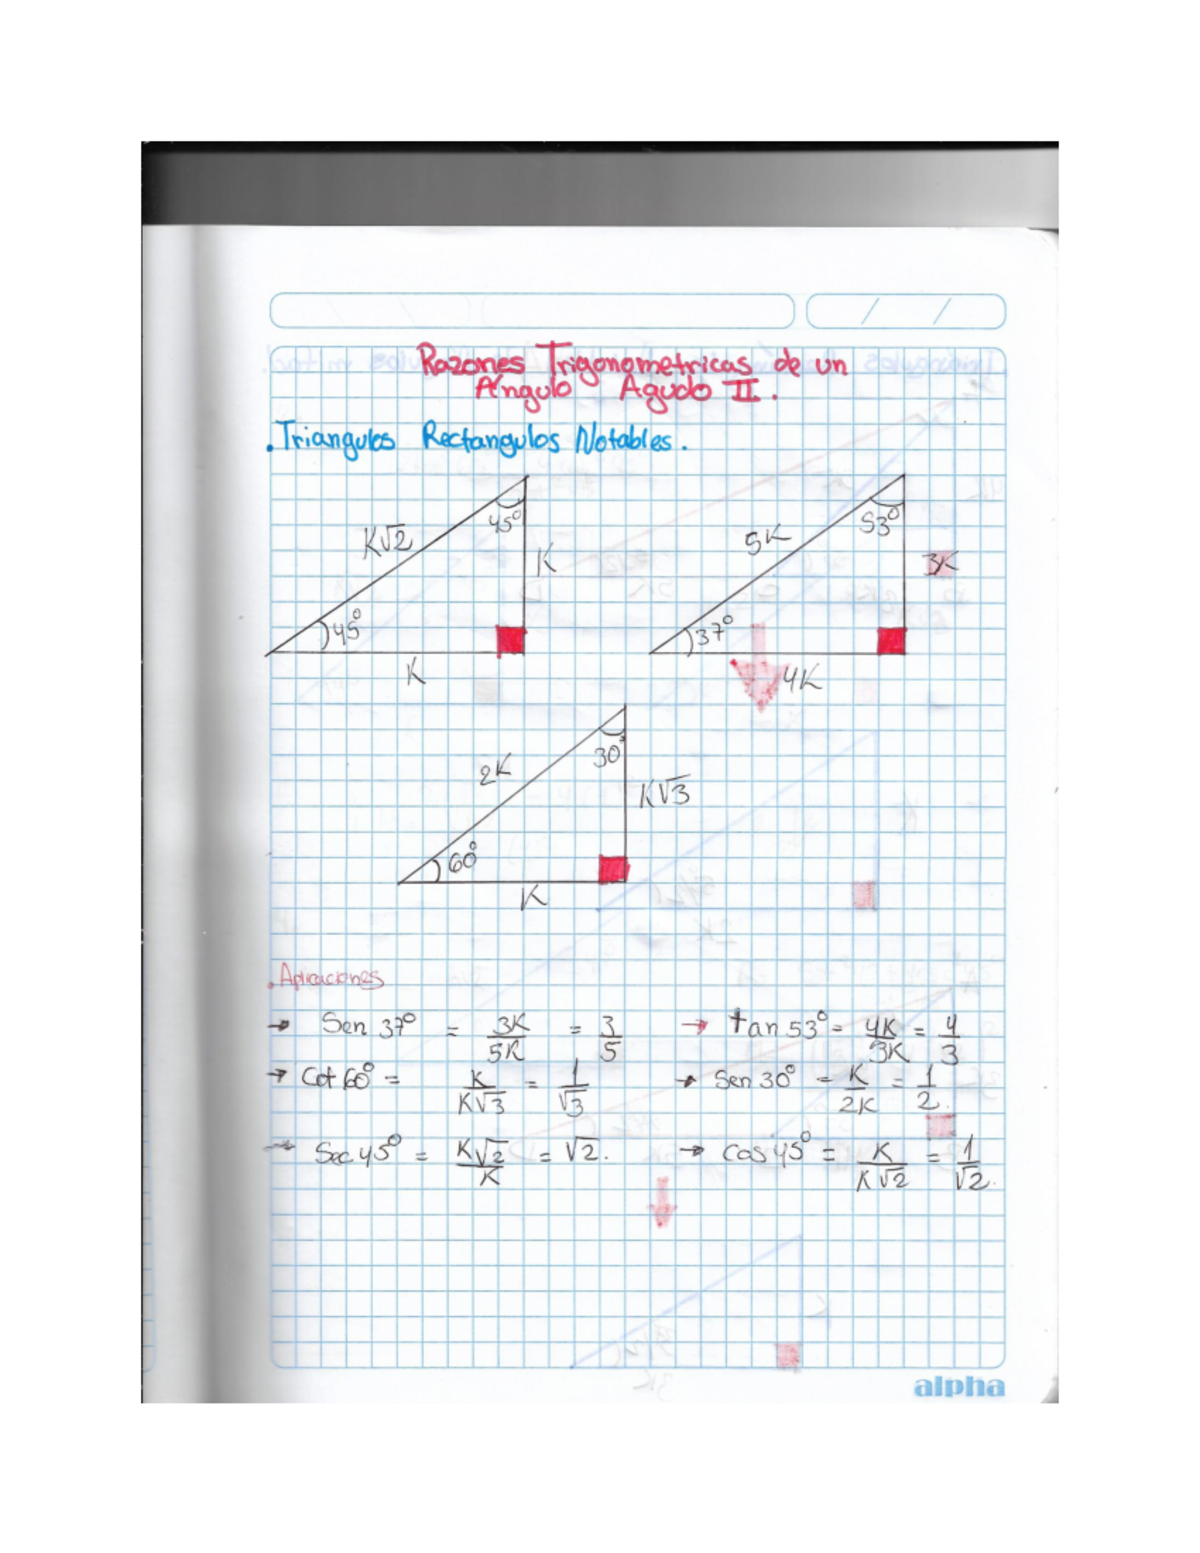 Razones Trigonometricas de un
Ángulo Agudo II.
. Triangulos Rectangulos Notables.
K√2 45° K 45° K
5K 53° 3K 37° 4K
2K 30° K√3 60° K
. Aplicaciones
→ Sen 37° = 3K/5K = 3/5 → tan 53° = 4K/3K = 4/3
→ Cot 60° = K/K√3 = 1/√3 → Sen 30° = K/2K = 1/2.
→ Sec 45° = K√2/K = √2. → Cos 45° = K/K√2 = 1/√2.
alpha